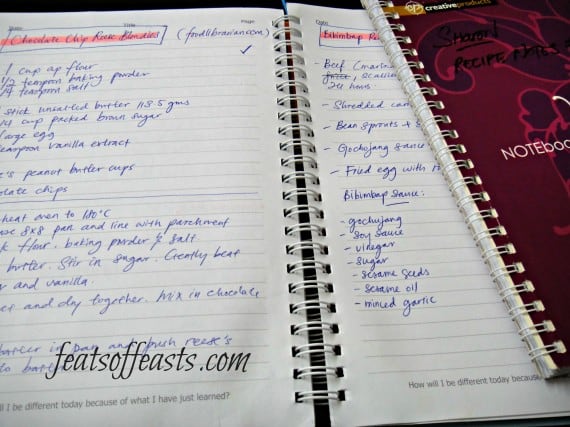 Date Title Page
Chocolate Chip Reese Blondies (foodlibrarian.com)
1 cup ap flour
1/2 teaspoon baking powder
1/4 teaspoon salt
stick unsalted butter 113.5 gms
1/4 cup packed brown sugar
large egg
teaspoon vanilla extract
peanut butter cups
chips
oven to 180°C
8x8 pan and line with parchment
flour. baking powder & salt
butter. Stir in sugar. Gently beat
and vanilla.
and dry together. Mix in chocolate
batter in pan and push reese's
to
I be different today because of what I have just learned?
Date
Bibimbap
- Beef
24 hours
- Shredded
- Bean sprouts +
- Gochujang sauce
- Fried egg with
Bibimbap Sauce:
- gochujang
- Soy sauce
- vinegar
- sugar
- sesame seeds
- sesame oil
- minced garlic
How will I be different today
creativeproducts
SHARON
RECIPE, NOTES
NOTEbook
featsoffeasts.com